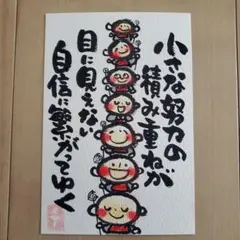 小さな努力の
積み重ねが
目に見えない
自信に繋がってゆく